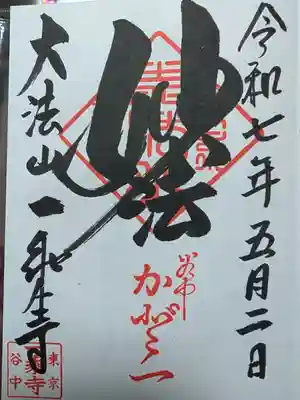 令和七年五月二日
妙法
谷中
大法山一乗寺
東京
一乗寺
谷中